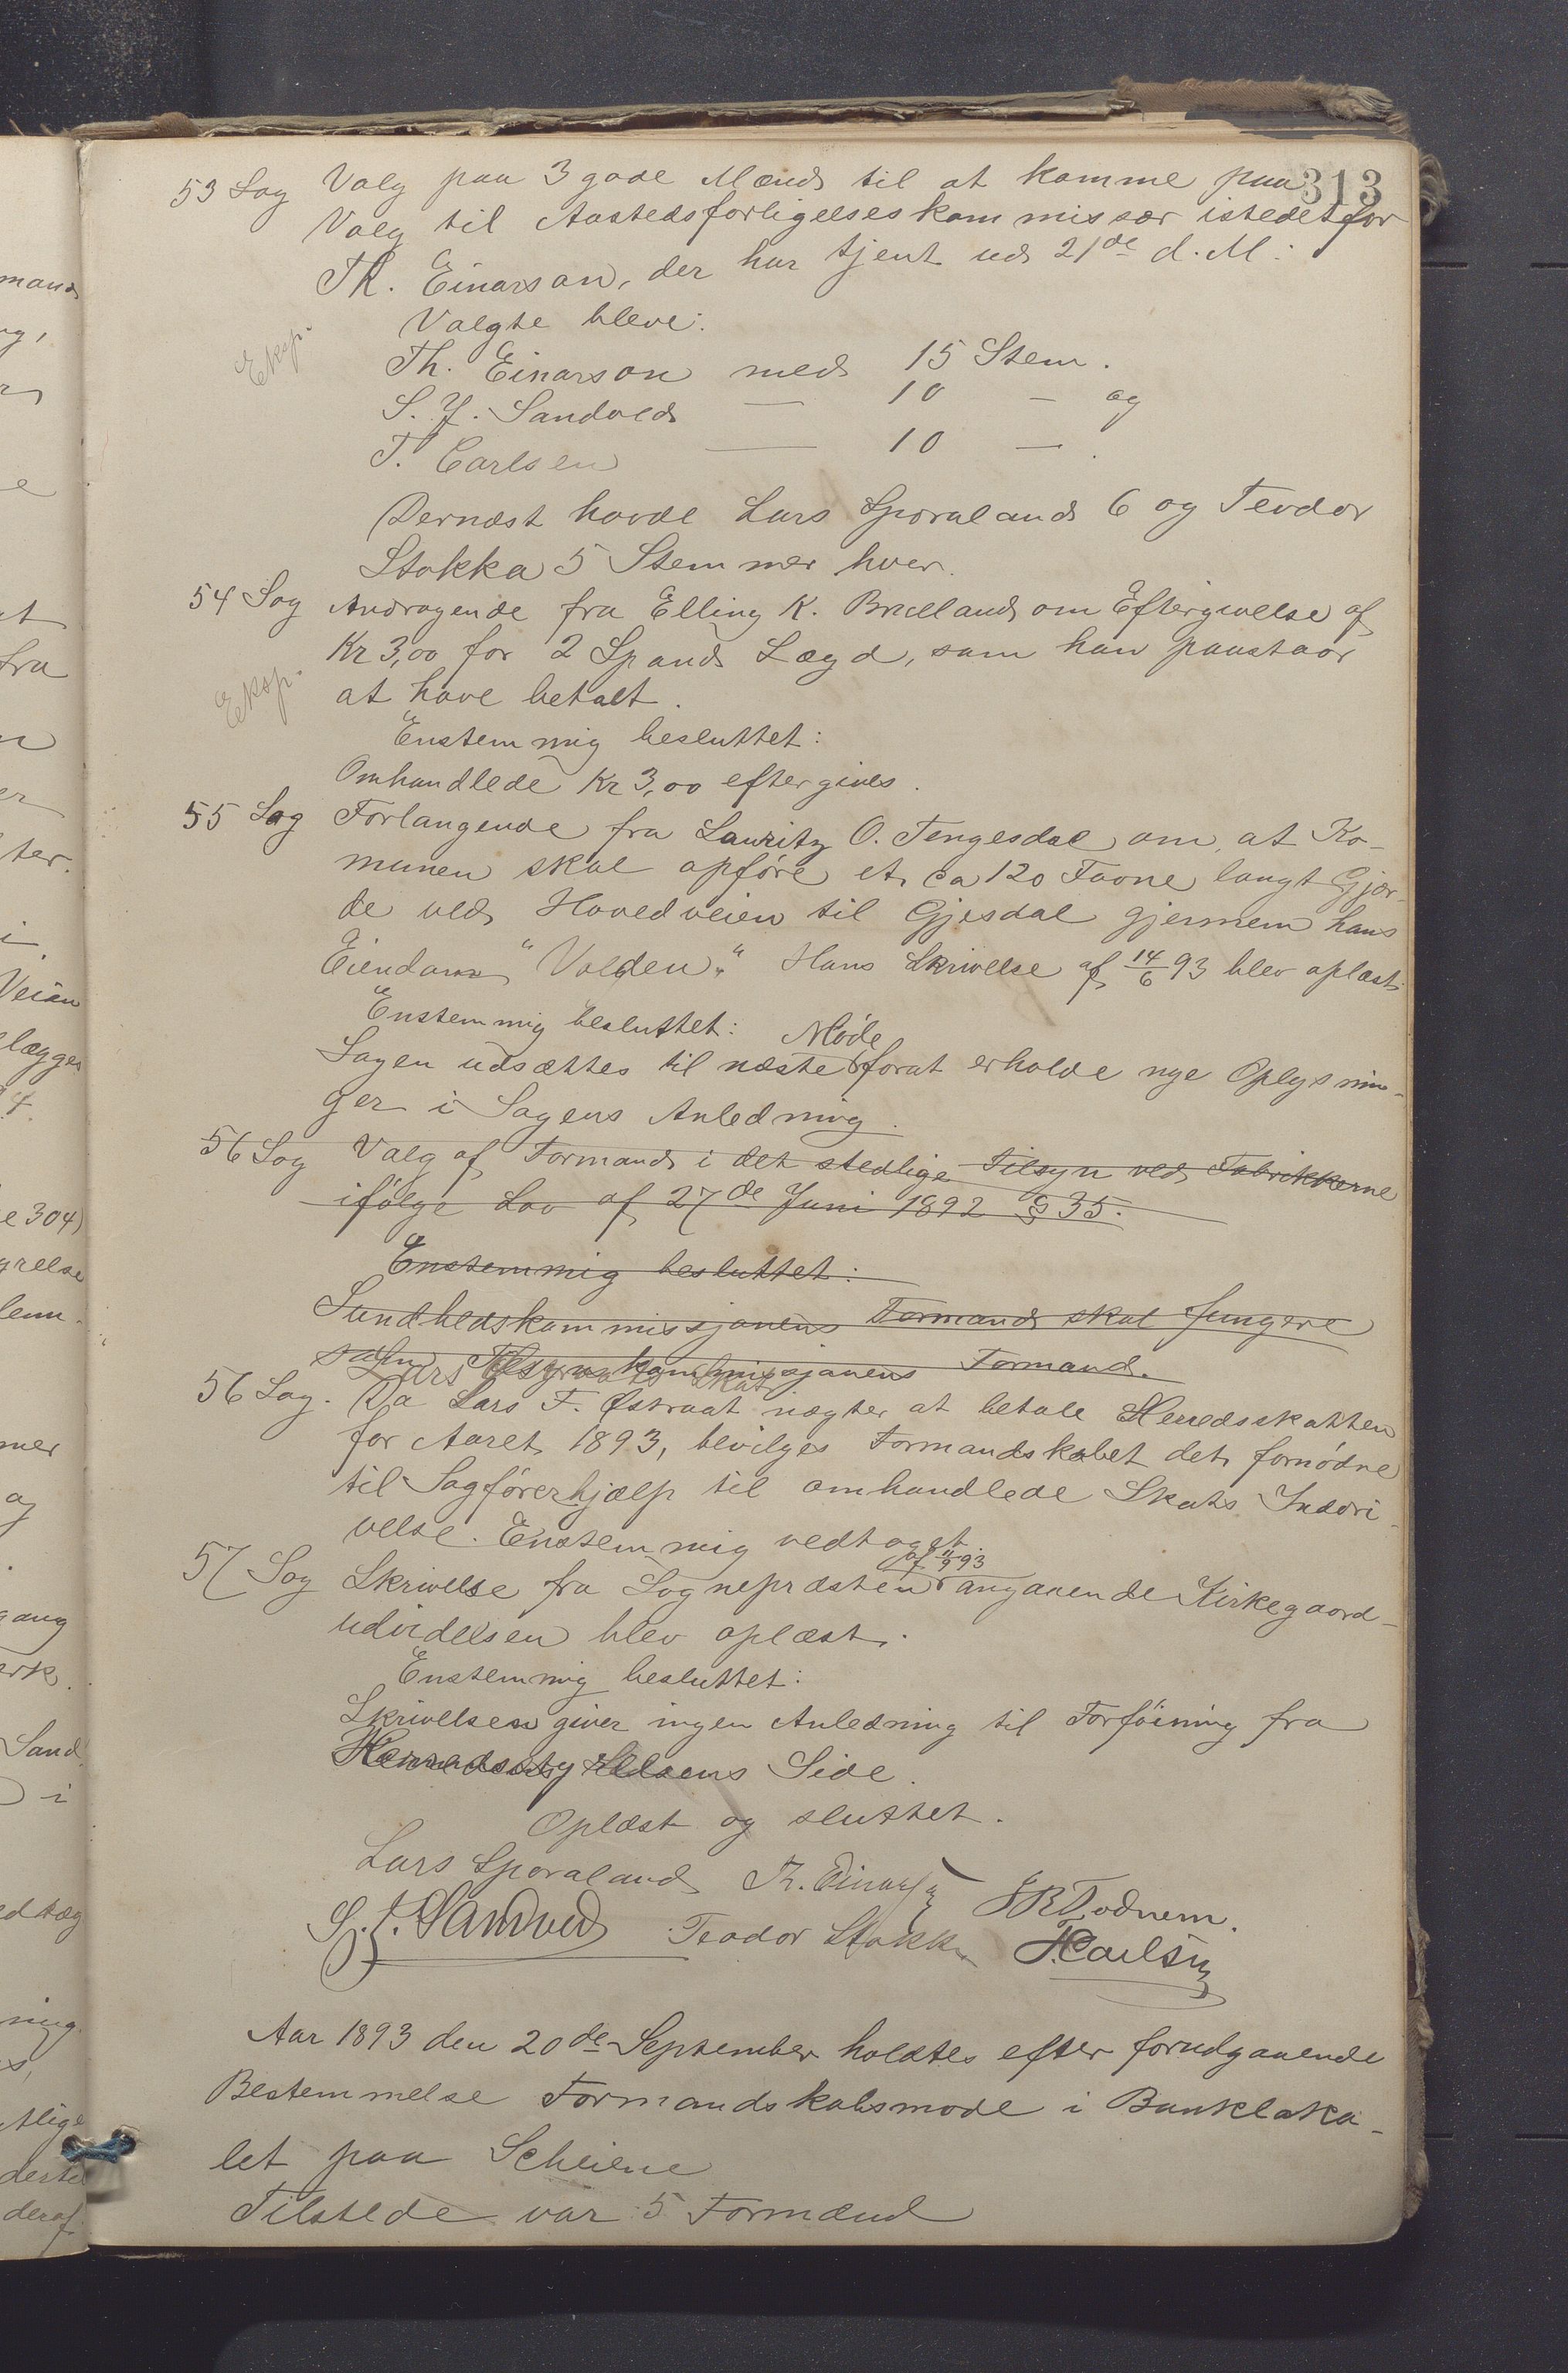 313
53 Sag Valg paa 3 gode Mænd til at komme paa
Valg til Aastedsforligelseskommissær istedetfor
Th. Einarson, der har tjent ud 21de d. M:
Valgte bleve:
Eksp.
Th. Einarson med 15 Stem.
S. J. Sandved — 10 — og
T. Carlsen — 10 —.
Dernæst havde Lars Sporaland 6 og Teodor
Stokka 5 Stemmer hver.
54 Sag Andragende fra Elling K. Bruland om Eftergivelse af
Kr 3,00 for 2 Spand Lægd, som han paastaar
Eksp.
at have betalt.
Enstemmig besluttet:
Omhandlede Kr 3,00 eftergives.
55 Sag Forlangende fra Lauritz O. Tengesdal om, at Ko-
munen skal opføre et ca 120 Favne langt Gjær-
de ved Hovedveien til Gjesdal gjennem hans
Eiendom "Volden." Hans Skrivelse af 14/6 93 blev oplæst.
Enstemmig besluttet:
Møde
Sagen udsættes til næste forat erholde nye Oplysnin-
ger i Sagens Anledning.
56 Sag Valg af Formand i det stedlige Tilsyn ved Fabrikkerne
ifølge Lov af 27de Juni 1892 § 35.
Enstemmig besluttet:
Sundhedskommissjonens Formand skal fungere
som Tilsynskommissjonens Formand.
56 Sag. Da Lars F. Østraat nægter at betale Herredsskatten
for Aaret 1893, bevilges Formandskabet det fornødne
til Sagførerhjælp til omhandlede Skats Inddri-
velse. Enstemmig vedtaget.
af 11/9 93
57 Sag Skrivelse fra Sognepræsten angaaende Kirkegaard-
udvidelsen blev oplæst.
Enstemmig besluttet:
Skrivelsen giver ingen Anledning til Forføining fra
Herredsstyrelsens Side.
Oplæst og sluttet.
Lars Sporaland Th. Einarson Todnem.
S. J. Sandved Teodor Stokka T. Carlsen
Aar 1893 den 20de September holdtes efter forudgaaende
Bestemmelse Formandskabsmøde i Bankloka-
let paa Scheiene
Tilstede var 5 Formænd